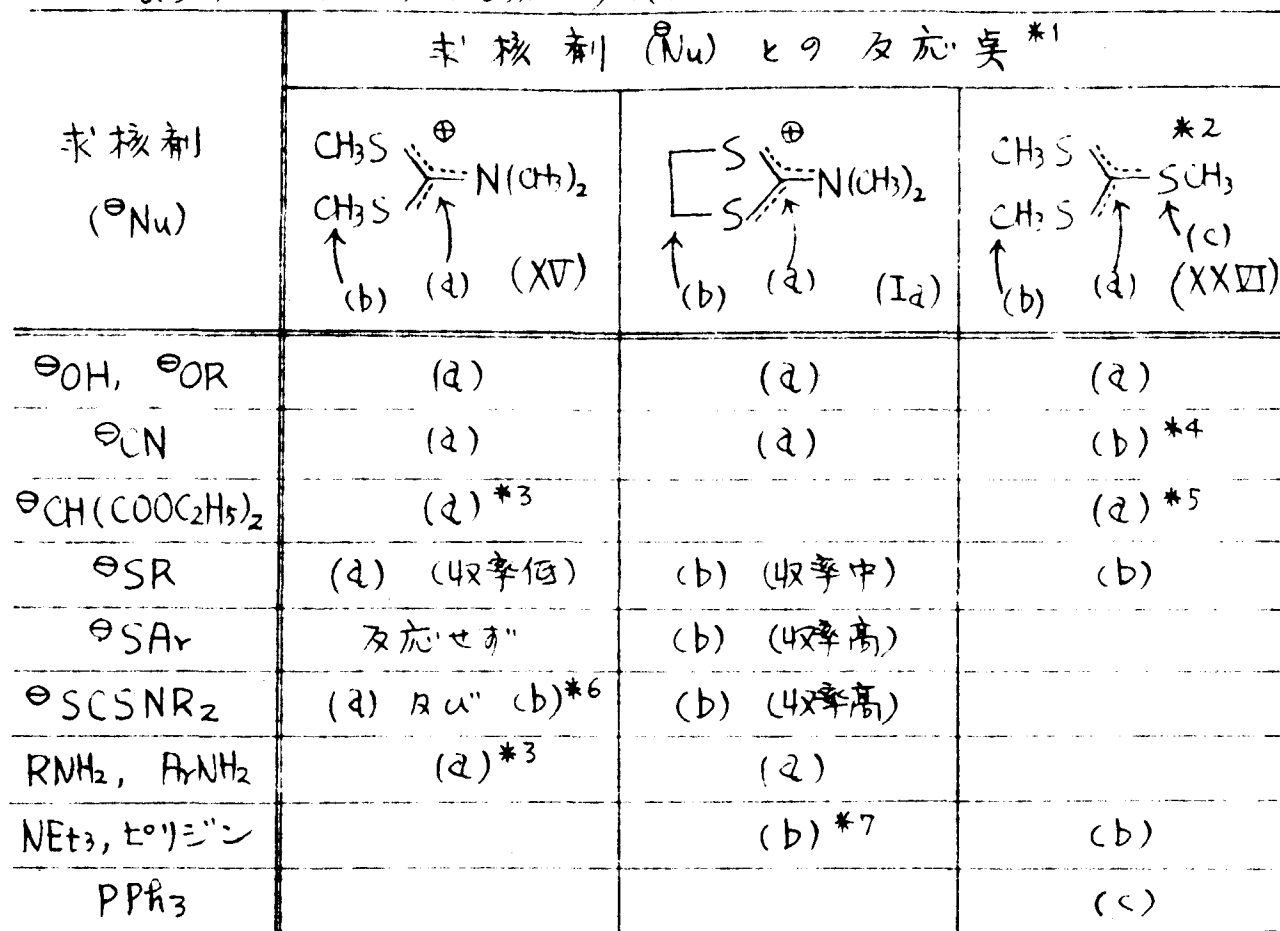 求核剤 (⊖Nu) との反応点 *1
求核剤
(⊖Nu)
CH3S CH3S ⊕ N(CH3)2 (b) (a) (XV)
S S ⊕ N(CH3)2 (b) (a) (Ia)
CH3S CH3S *2 SCH3 (c) (b) (a) (XXVI)
⊖OH, ⊖OR (a) (a) (a)
⊖CN (a) (a) (b) *4
⊖CH(COOC2H5)2 (a) *3 (a) *5
⊖SR (a) (収率低) (b) (収率中) (b)
⊖SAr 反応せず (b) (収率高)
⊖SCSNR2 (a) 及び (b) *6 (b) (収率高)
RNH2, ArNH2 (a) *3 (a)
NEt3, ピリジン (b) *7 (b)
PPh3 (c)